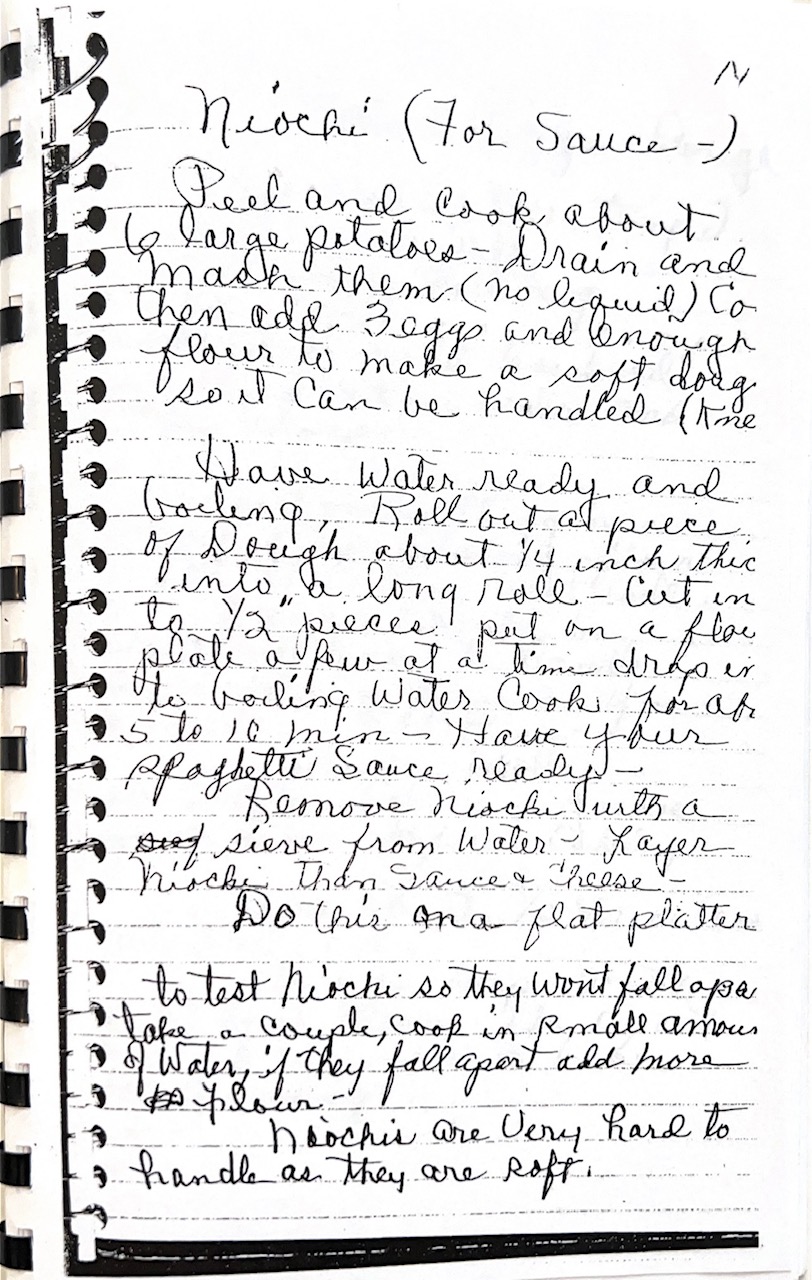 N
Niochi (For Sauce -)
Peel and cook about
6 large potatoes - Drain and
mash them (no liquid) Co
then add 3 eggs and enough
flour to make a soft doug
so it can be handled (Kne
Have Water ready and
boiling, Roll out a piece
of Dough about 1/4 inch thic
into a long roll - Cut in
to 1/2" pieces put on a flou
plate a few at a time drop in
to boiling Water Cook for ab
5 to 10 min - Have your
spaghetti Sauce ready -
Remove Niochi with a
sieve from Water - Layer
Niochi Than Sauce + Cheese -
Do this on a flat platter
to test Niochi so they wont fall apa
take a couple, cook in small amoun
of Water, if they fall apart add more
flour -
Niochis are Very hard to
handle as they are soft.